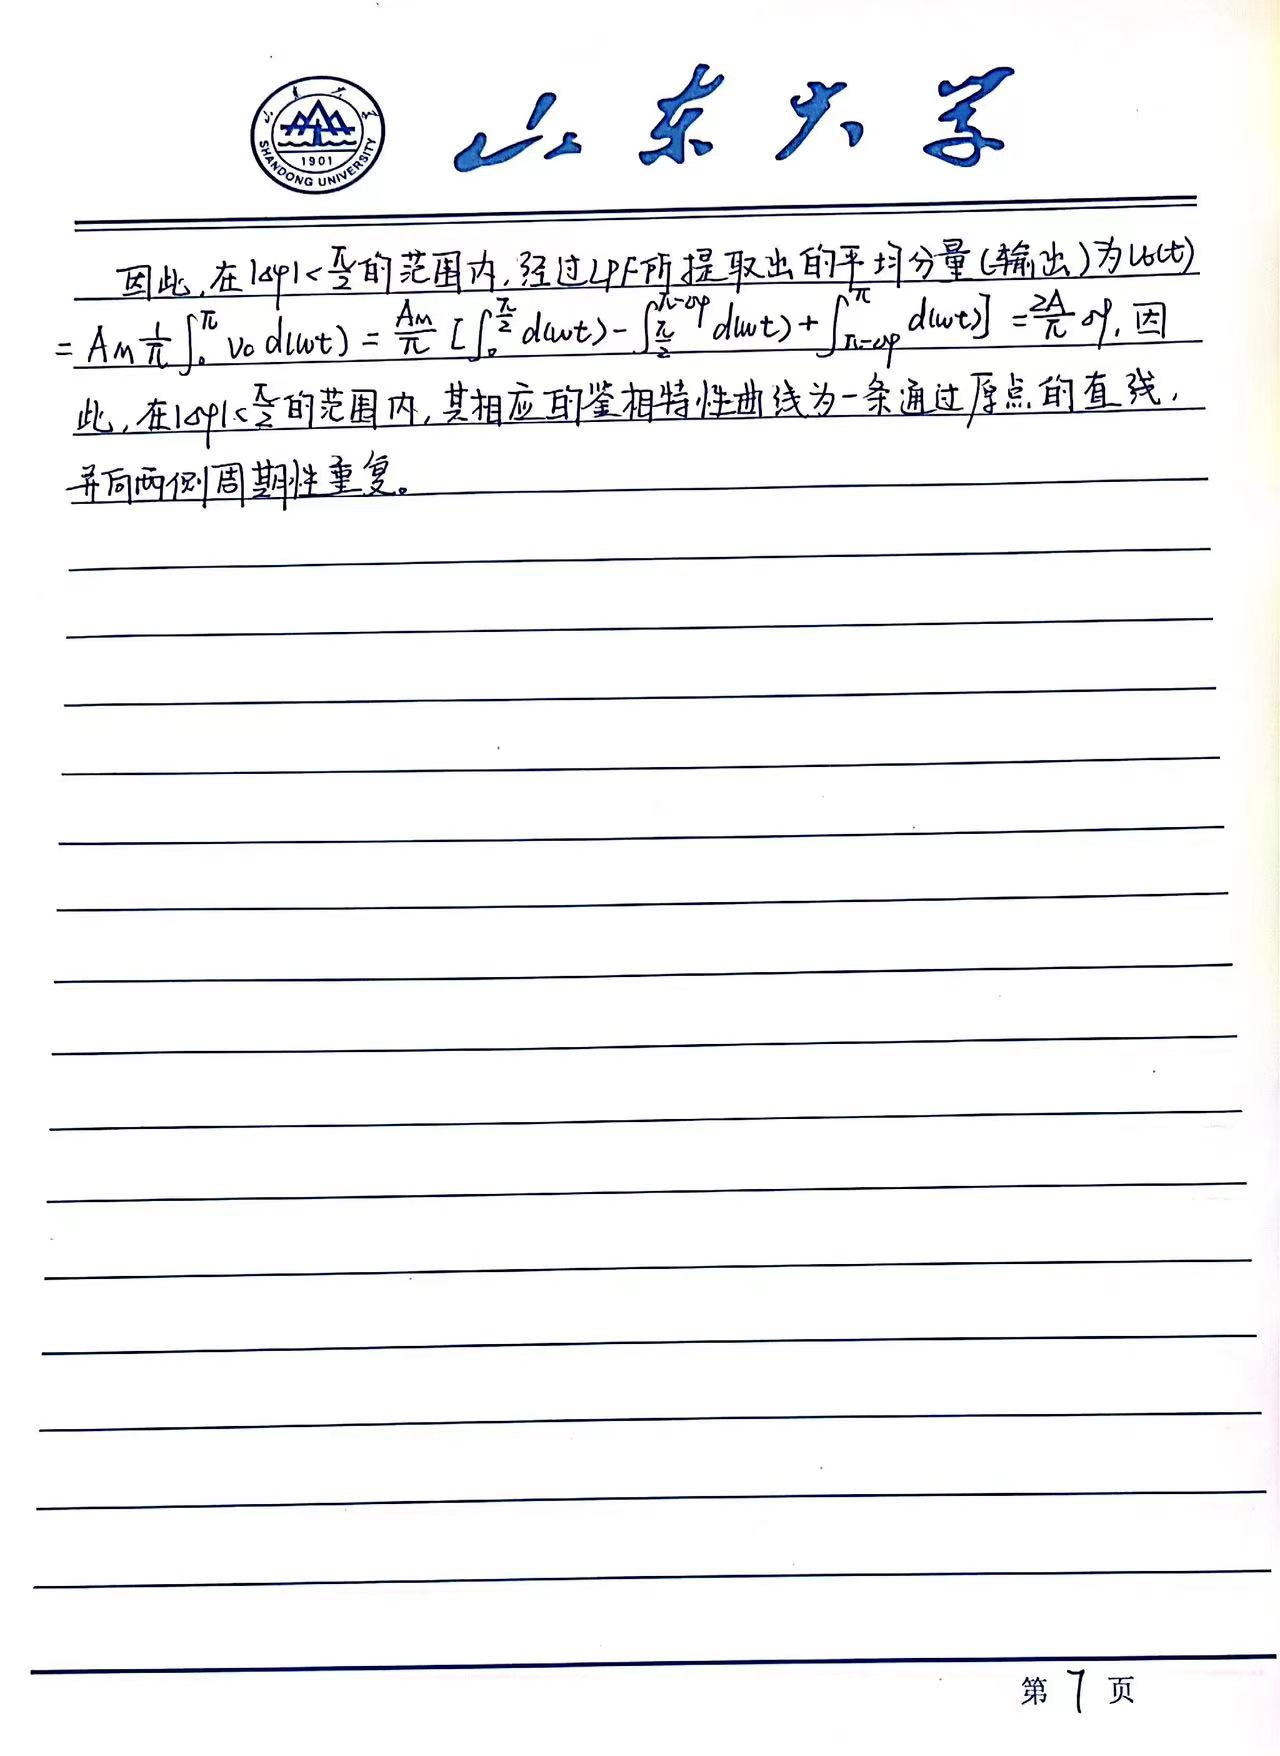 山东大学
SHANDONG UNIVERSITY
1901
因此,在|Δφ|<π/2的范围内,经过LPF所提取出的平均分量(输出)为Uo(t)
= Am 1/π ∫₀^π vo d(ωt) = Am/π [∫₀^{π/2} d(ωt) - ∫_{π/2}^{π-Δφ} d(ωt) + ∫_{π-Δφ}^π d(ωt)] = 2A/π Δφ, 因
此,在|Δφ|<π/2的范围内,其相应的鉴相特性曲线为一条通过原点的直线,
并向两侧周期性重复。
第 7 页